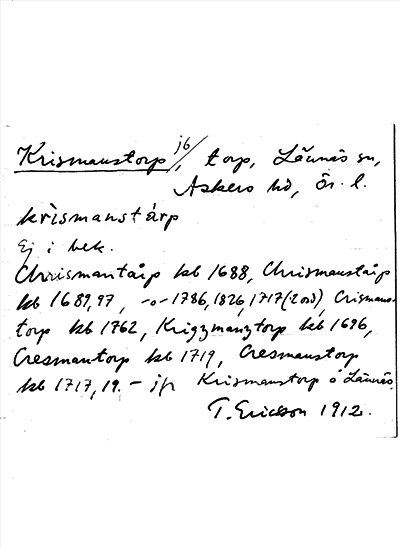 Krismanstorp jb/, torp, Lännäs sn,
Askers hd, Ör. l.
krìsmanstárp
Ej i bek.
Chrismantåip kb 1688, Chrismanståip
kb 1689,97, -o- 1786, 1826, 1717 (2 ord), Crismans-
torp kb 1762, Krigzmanztorp kb 1696,
Cresmantorp kb 1719, Cresmanstorp
kb 1717, 19. – jfr Krismanstorp o Lännäs.
T. Ericsson 1912.